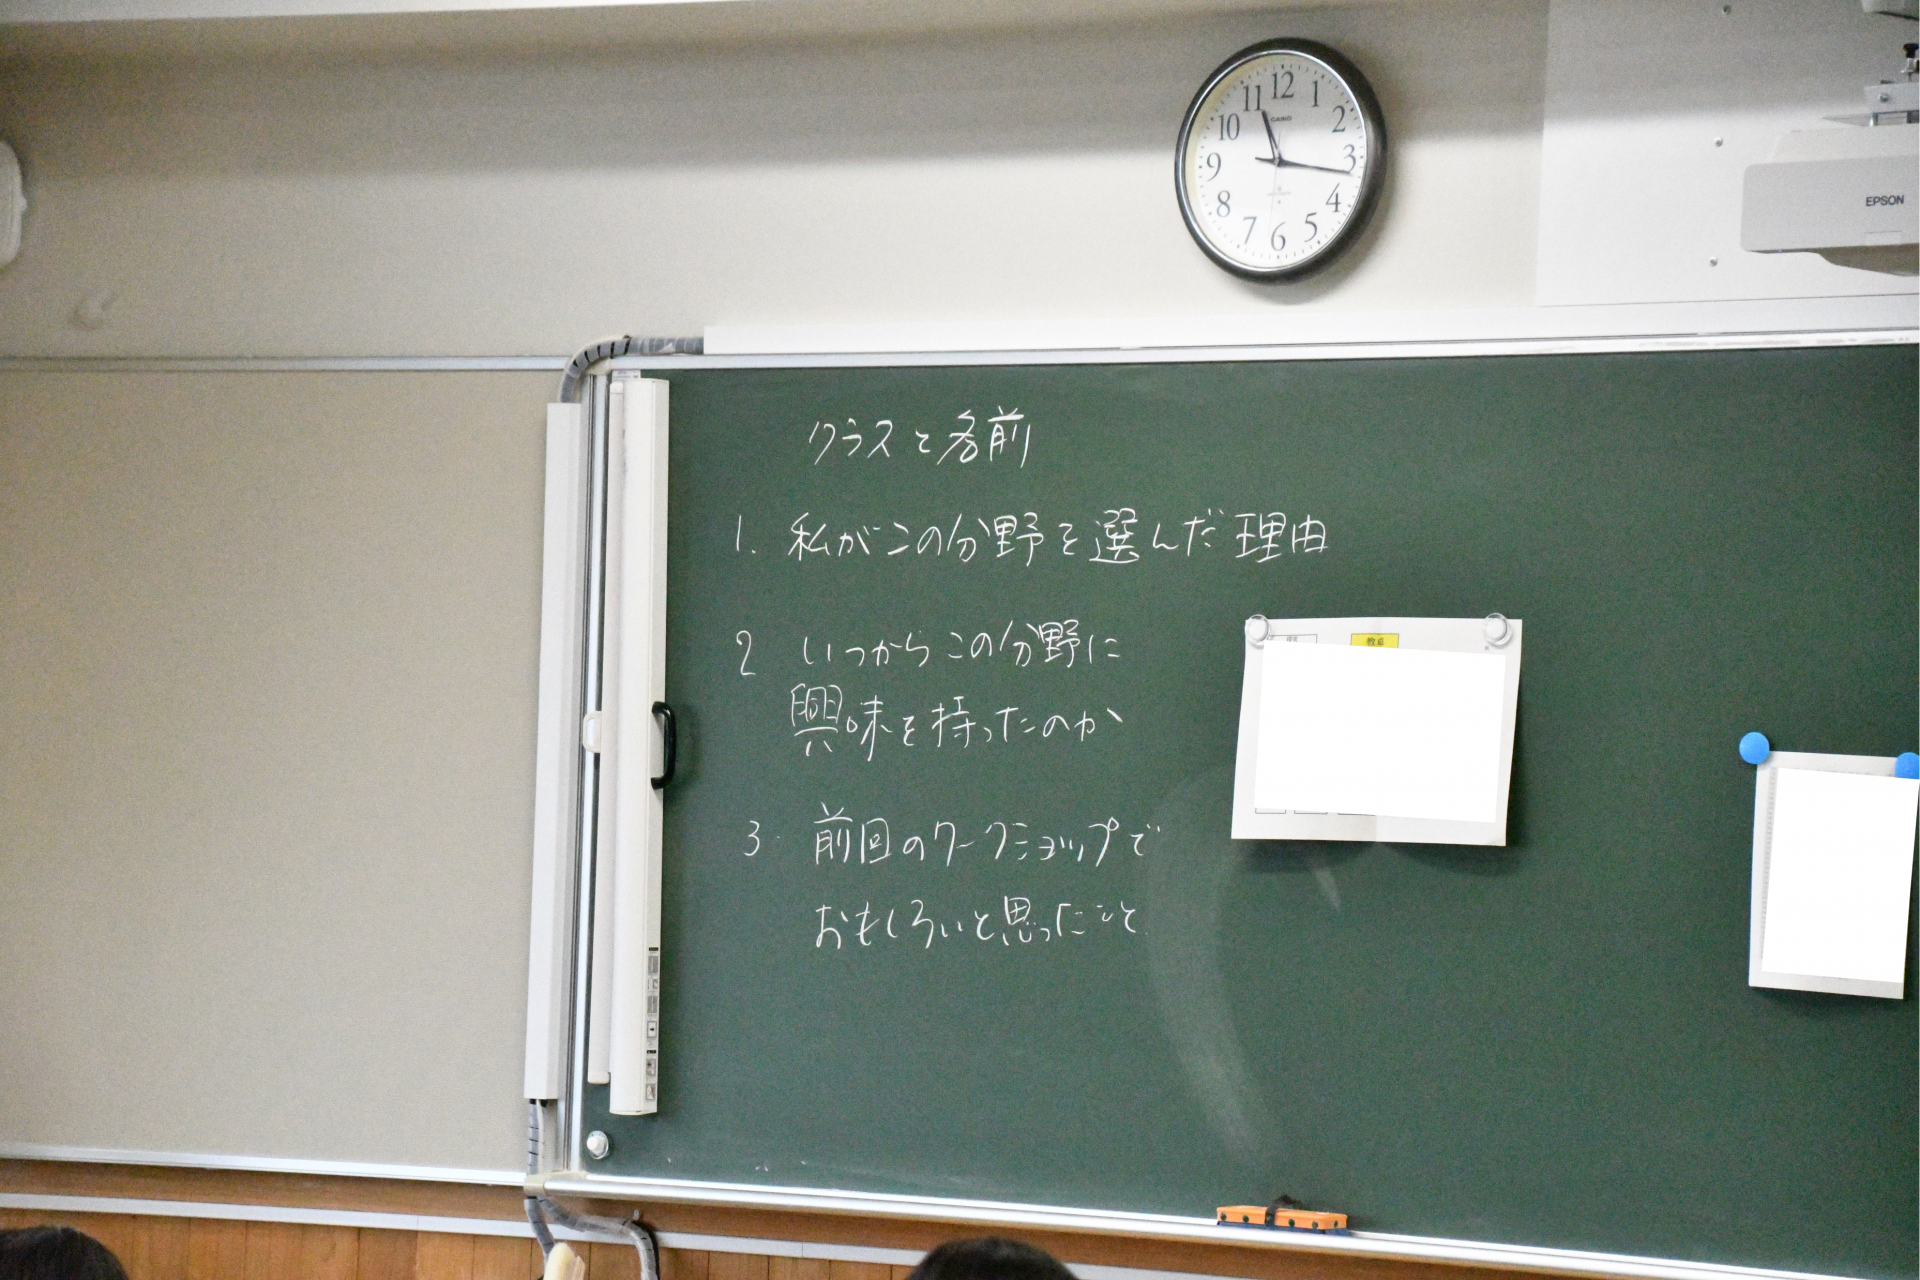 12
11 1
10 2
9 3
8 4
7 5
6
CASIO
EPSON
クラスと名前
1. 私がこの分野を選んだ理由
2 いつからこの分野に
興味を持ったのか
教卓
3. 前回のワークショップで
おもしろいと思ったこと